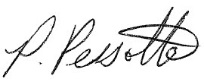 P. Pessotto